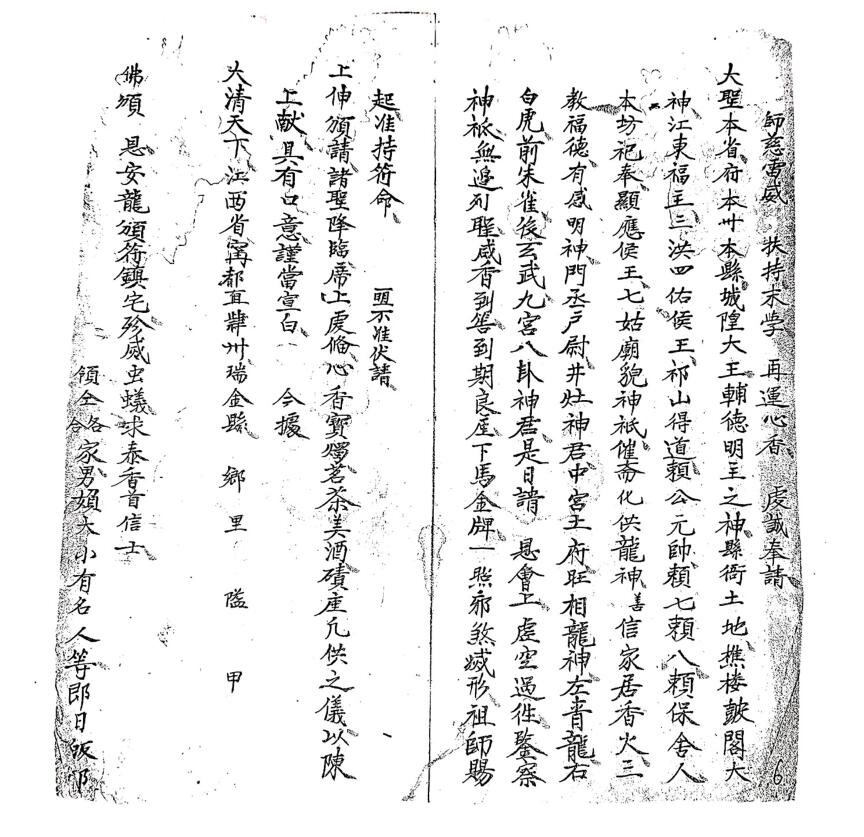 師慈雷威 扶持末學 再運心香 虔誠奉請
大聖本省府本州本縣城隍大王輔德明王之神縣衙土地樵楼皷閣大
神江東福主三洪四佑侯王祁山得道賴公元帥賴七賴八賴保舍人
本坊祀奉顯應侯王七姑廟貌神祇催斋化供龍神善信家居香火三
教福德有感明神門丞户尉井灶神君中宮土府旺相龍神左青龍右
白虎前朱雀後玄武九宮八卦神君是日請 恩會上虛空過徃鑒察
神祗無邉列聖咸香到筶到期良座下馬金牌一照邪煞滅形祖師賜
起准持符命 不准伏請
上伸頒請諸聖降臨席上虔俻心香寶燭茗茶美酒磧座凢供之儀以陳
上献具有口意謹當宣白 今據
大清天下江西省寕都直肆州瑞金縣 鄉 里 隘 甲
佛頒 恩安龍頒符鎮宅殄滅虫蟻求泰香首信士
領仝各合家男婦大小有名人等即日皈
6